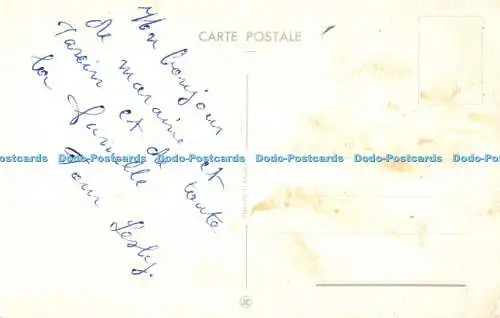 CARTE POSTALE
Mon bonjour
de marraine et
Parrain et de toute
la famille
Pour Lesly.
Dodo-Postcards Dodo-Postcards Dodo-Postcards Dodo-Postcards Dodo-Postcards Dodo-Postcards
JC